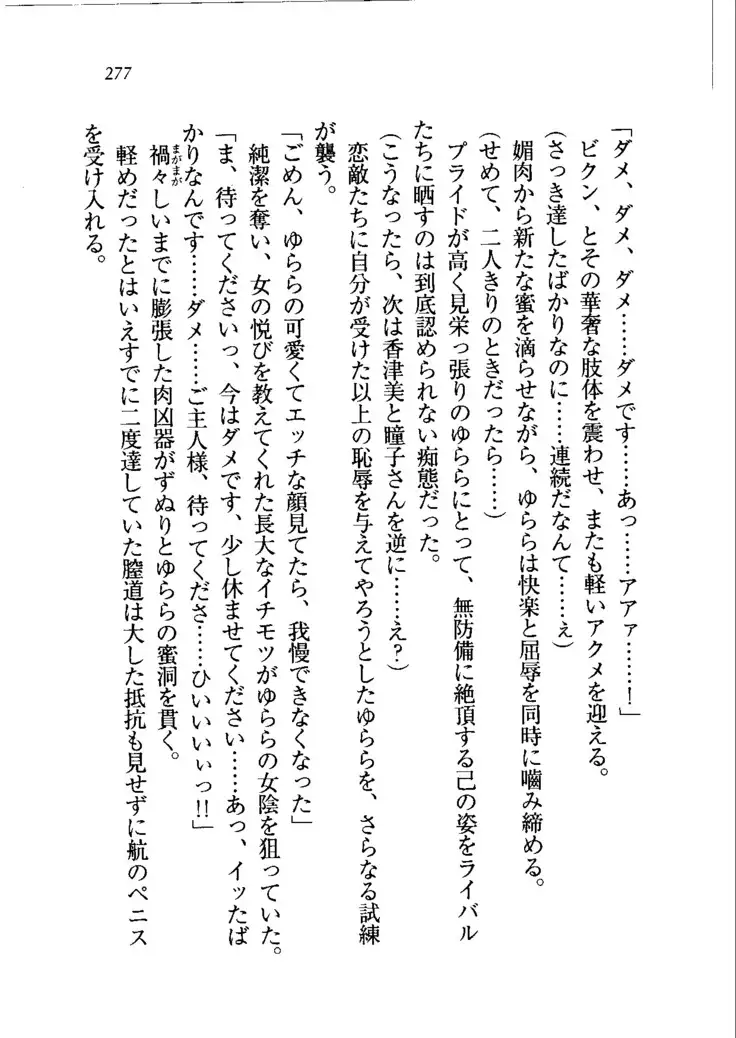 277
「ダメ、ダメ、ダメ……ダメです……あっ……アアァ……！」
ビクン、とその華奢な肢体を震わせ、またも軽いアクメを迎える。
（さっき達したばかりなのに……連続だなんて……ぇ）
媚肉から新たな蜜を滴らせながら、ゆららは快楽と屈辱を同時に嚙み締める。
（せめて、二人きりのときだったら……）
プライドが高く見栄っ張りのゆららにとって、無防備に絶頂する己の姿をライバル
たちに晒すのは到底認められない痴態だった。
（こうなったら、次は香津美と瞳子さんを逆に……え？）
恋敵たちに自分が受けた以上の恥辱を与えてやろうとしたゆららを、さらなる試練
が襲う。
「ごめん、ゆららの可愛くてエッチな顔見てたら、我慢できなくなった」
純潔を奪い、女の悦びを教えてくれた長大なイチモツがゆららの女陰を狙っていた。
「ま、待ってくださいっ、今はダメです、少し休ませてください……あっ、イッたば
かりなんです……ダメ……ご主人様、待ってくださ……ひぃいいぃっ!!」
禍々しいまでに膨張した肉凶器がずぬりとゆららの蜜洞を貫く。
まがまが
軽めだったとはいえすでに二度達していた膣道は大した抵抗も見せずに航のペニス
を受け入れる。